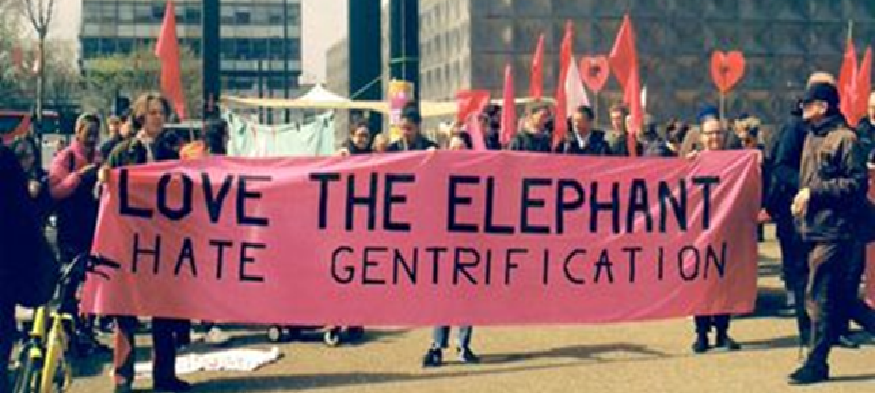 LOVE THE ELEPHANT
HATE GENTRIFICATION